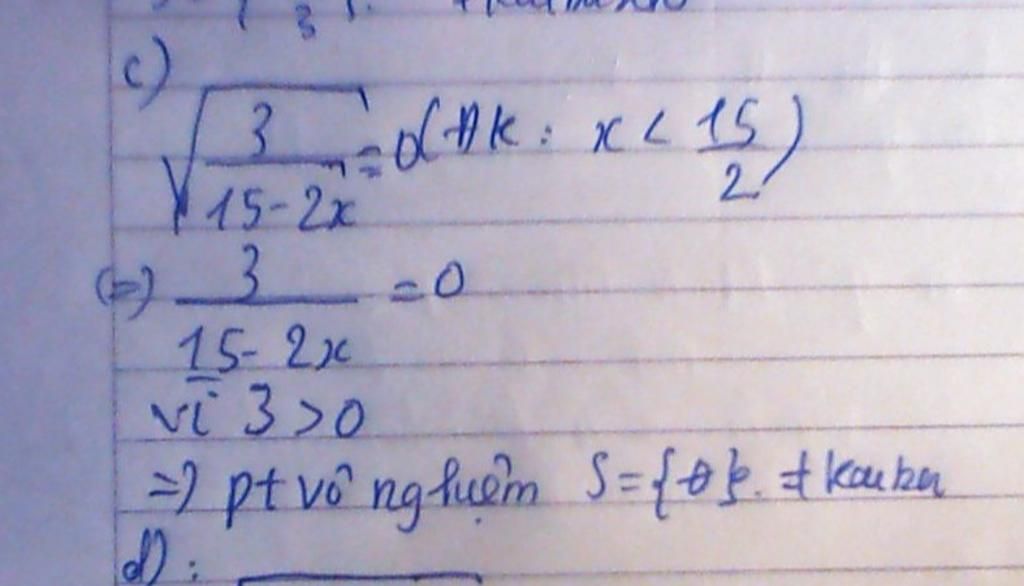 c)
√(3/(15-2x)) = 0 (ĐK: x < 15/2)
(=) 3/(15-2x) = 0
vì 3 > 0
=) pt vô nghiệm S = {ø}.
d):